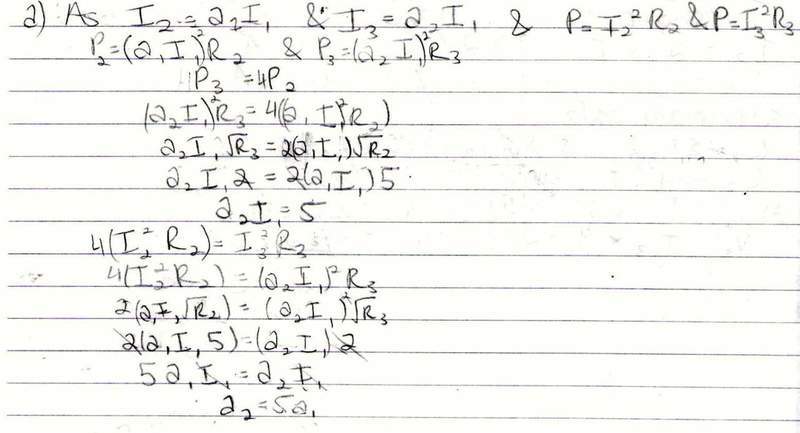 a) As I₂ = a₂I₁ & I₃ = a₂I₁ & P = I₂²R₂ & P = I₃²R₃
P₂ = (a₁I₁)²R₂ & P₃ = (a₂I₁)²R₃
P₃ = 4P₂
(a₂I₁)²R₃ = 4(a₁I₁)²R₂)
a₂I₁√R₃ = 2(a₁I₁)√R₂
a₂I₁2 = 2(a₁I₁)5
a₂I₁ = 5
4(I₂²R₂) = I₃²R₃
4(I₂²R₂) = (a₂I₁)²R₃
2(a₁I₁√R₂) = (a₂I₁)²√R₃
2(a₁I₁5) = (a₂I₁)2
5a₁I₁ = a₂I₁
a₂ = 5a₁